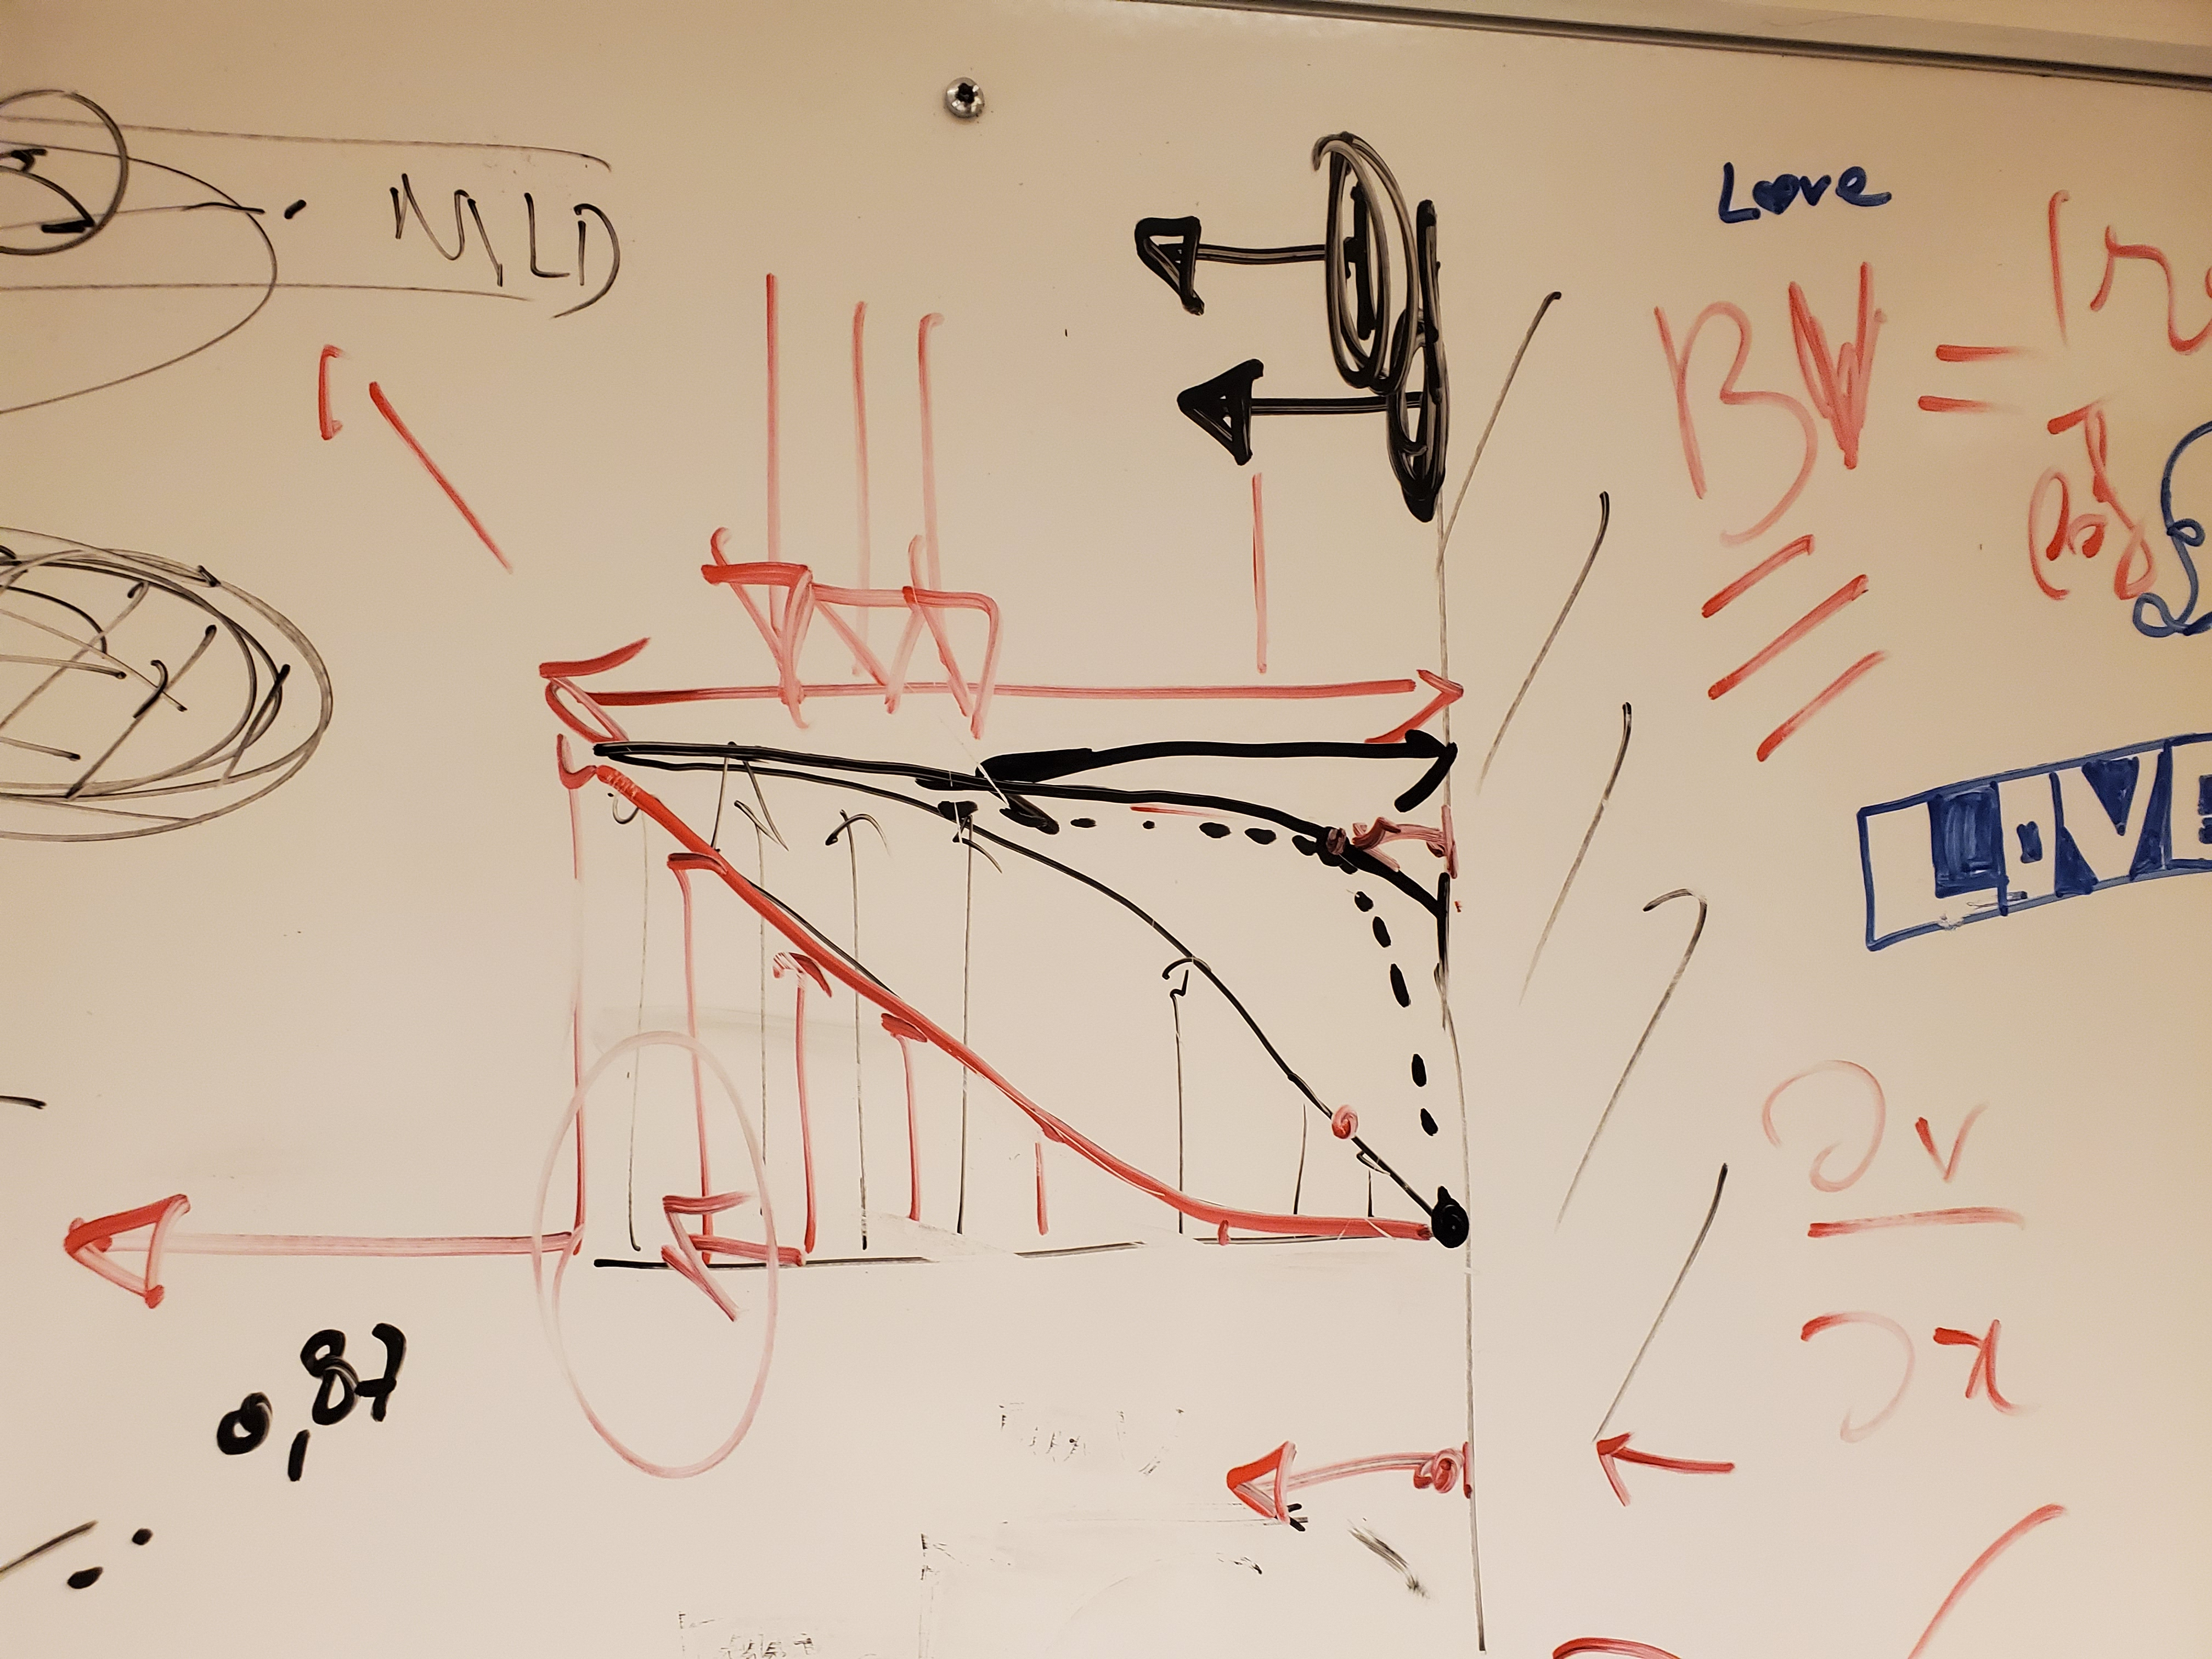 MLD
Love
BV =
LOVE
∂v
∂x
0,87